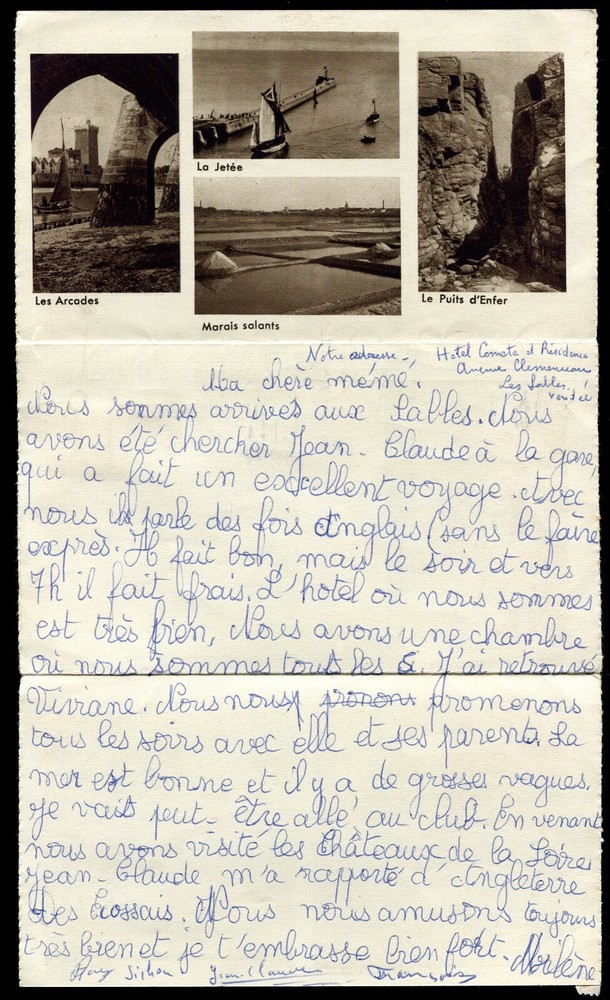 La Jetée
Les Arcades
Marais salants
Le Puits d'Enfer
Notre adresse - Hotel Comete et Résidence
Avenue Clemenceau
Les Sables.
Vendée
Ma chère mémé.
Nous sommes arrivés aux Sables. Nous
avons été chercher Jean-Claude à la gare,
qui a fait un excellent voyage. Avec
nous il parle des fois Anglais (sans le faire
exprès. Il fait bon, mais le soir et vers
7h il fait frais. L'hotel où nous sommes
est très bien, Nous avons une chambre
où nous sommes tous les 5. J'ai retrouvé
Viviane. Nous nous promenons
tous les soirs avec elle et ses parents. La
mer est bonne et il y a de grosses vagues.
Je vais peut-être allé au club. En venant
nous avons visité les Châteaux de la Loire
Jean-Claude m'a rapporté d'Angleterre
des Ecossais. Nous nous amusons toujours
très bien et je t'embrasse bien fort. Milène
Jean-Claude François